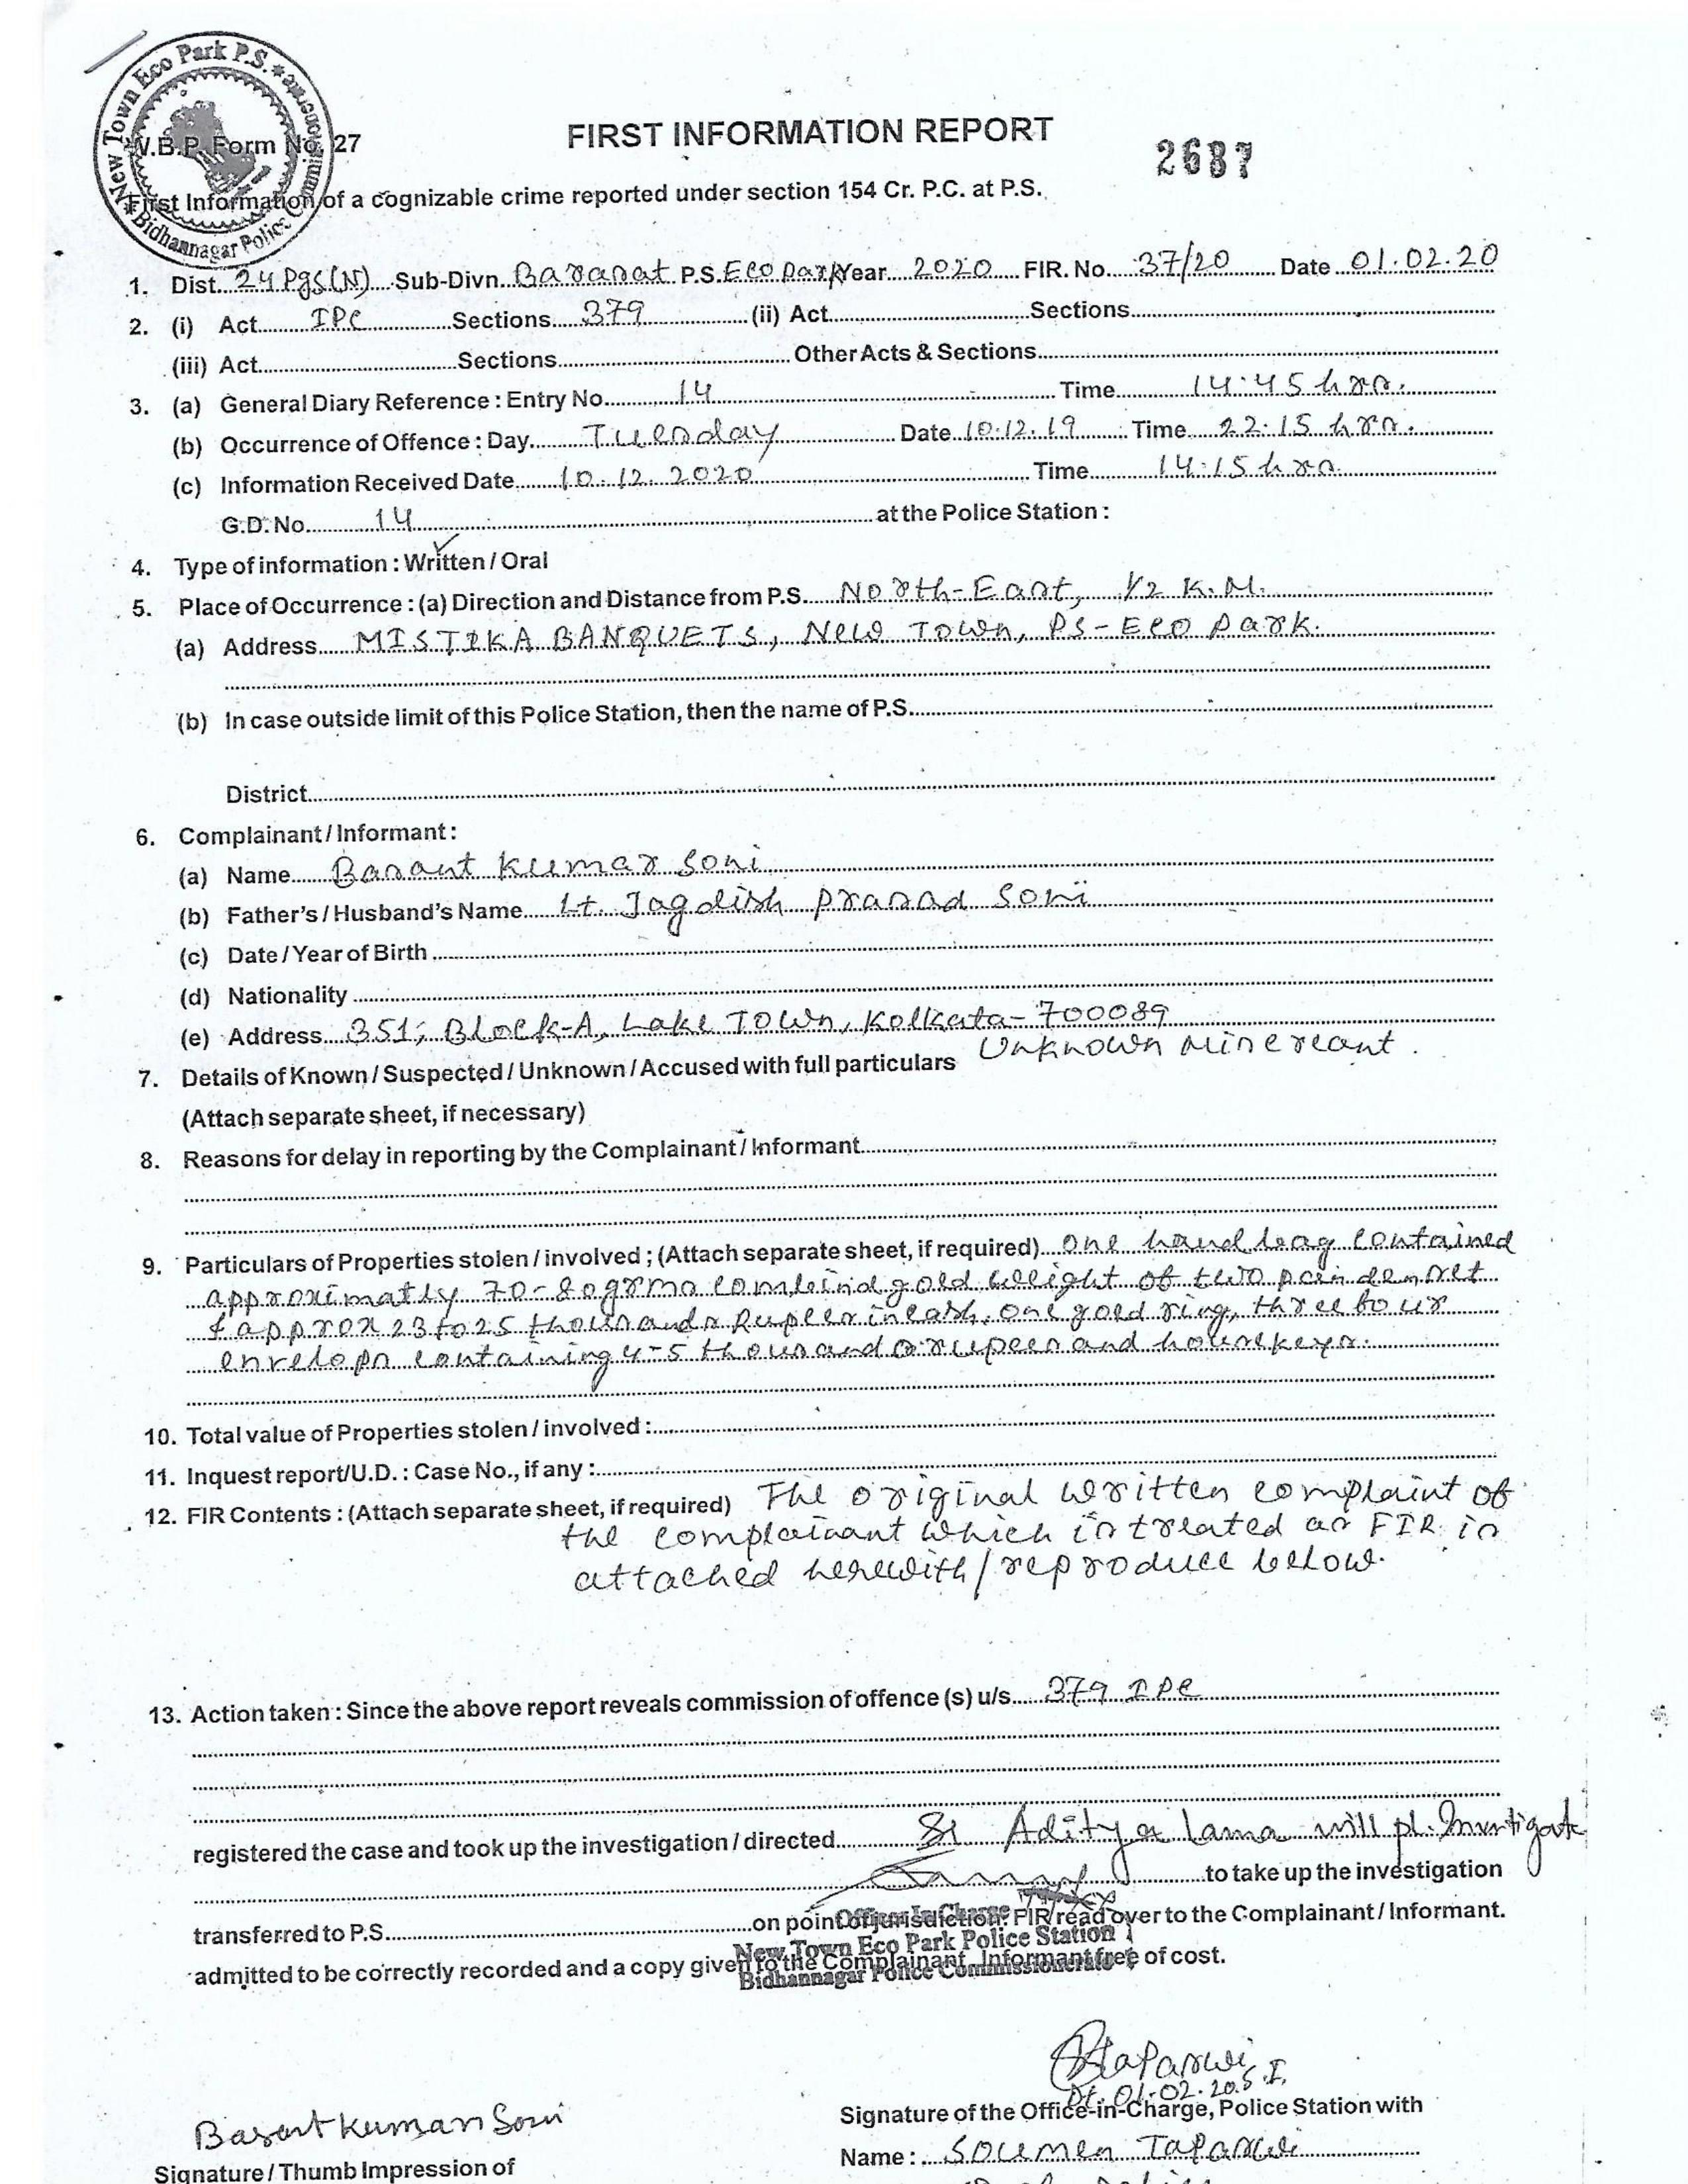 New Town Eco Park P.S.
Bidhannagar Police Commissionerate
W.B.P. Form No. 27
FIRST INFORMATION REPORT
2687
First Information of a cognizable crime reported under section 154 Cr. P.C. at P.S.
1. Dist. 24 Pgs(N) Sub-Divn. Barasat P.S. Eco Park Year 2020 FIR. No. 37/20 Date 01.02.20
2. (i) Act IPC Sections 379 (ii) Act Sections
(iii) Act Sections Other Acts & Sections
3. (a) General Diary Reference : Entry No. 14 Time 14:45 hrs.
(b) Occurrence of Offence : Day Tuesday Date 10.12.19 Time 22:15 hrs.
(c) Information Received Date 10.12.2020 Time 14:15 hrs
G.D. No. 14 at the Police Station :
4. Type of information : Written / Oral
5. Place of Occurrence : (a) Direction and Distance from P.S. North-East, 1/2 K.M.
(a) Address MISTIKA BANQUETS, New Town, PS-Eco Park.
(b) In case outside limit of this Police Station, then the name of P.S.
District
6. Complainant / Informant :
(a) Name Basant Kumar Soni
(b) Father's / Husband's Name Lt. Jagdish Prasad Soni
(c) Date / Year of Birth
(d) Nationality
(e) Address 351, Block-A, Lake Town, Kolkata-700089
7. Details of Known / Suspected / Unknown / Accused with full particulars Unknown Miscreant.
(Attach separate sheet, if necessary)
8. Reasons for delay in reporting by the Complainant / Informant
9. Particulars of Properties stolen / involved ; (Attach separate sheet, if required) One hand bag contained
approximatly 70-80 grms combind gold weight of two set
& approx 23 to 25 thousands Rupees in cash, one gold ring, three four
envelops containing 4-5 thousands rupees and house keys.
10. Total value of Properties stolen / involved :
11. Inquest report/U.D. : Case No., if any :
12. FIR Contents : (Attach separate sheet, if required) The original written complaint of
the complainant which is treated as FIR is
attached herewith/reproduce below.
13. Action taken : Since the above report reveals commission of offence (s) u/s 379 IPC
registered the case and took up the investigation / directed SI Aditya Lama will pl. Investigate
to take up the investigation
transferred to P.S. on point of jurisdiction. FIR read over to the Complainant / Informant.
Officer In-Charge
New Town Eco Park Police Station
admitted to be correctly recorded and a copy given to the Complainant Informant free of cost.
Bidhannagar Police Commissionerate
Dt. 01.02.20 S.I.
Basant Kumar Soni
Signature of the Office-in-Charge, Police Station with
Signature / Thumb Impression of
Name : Soumen